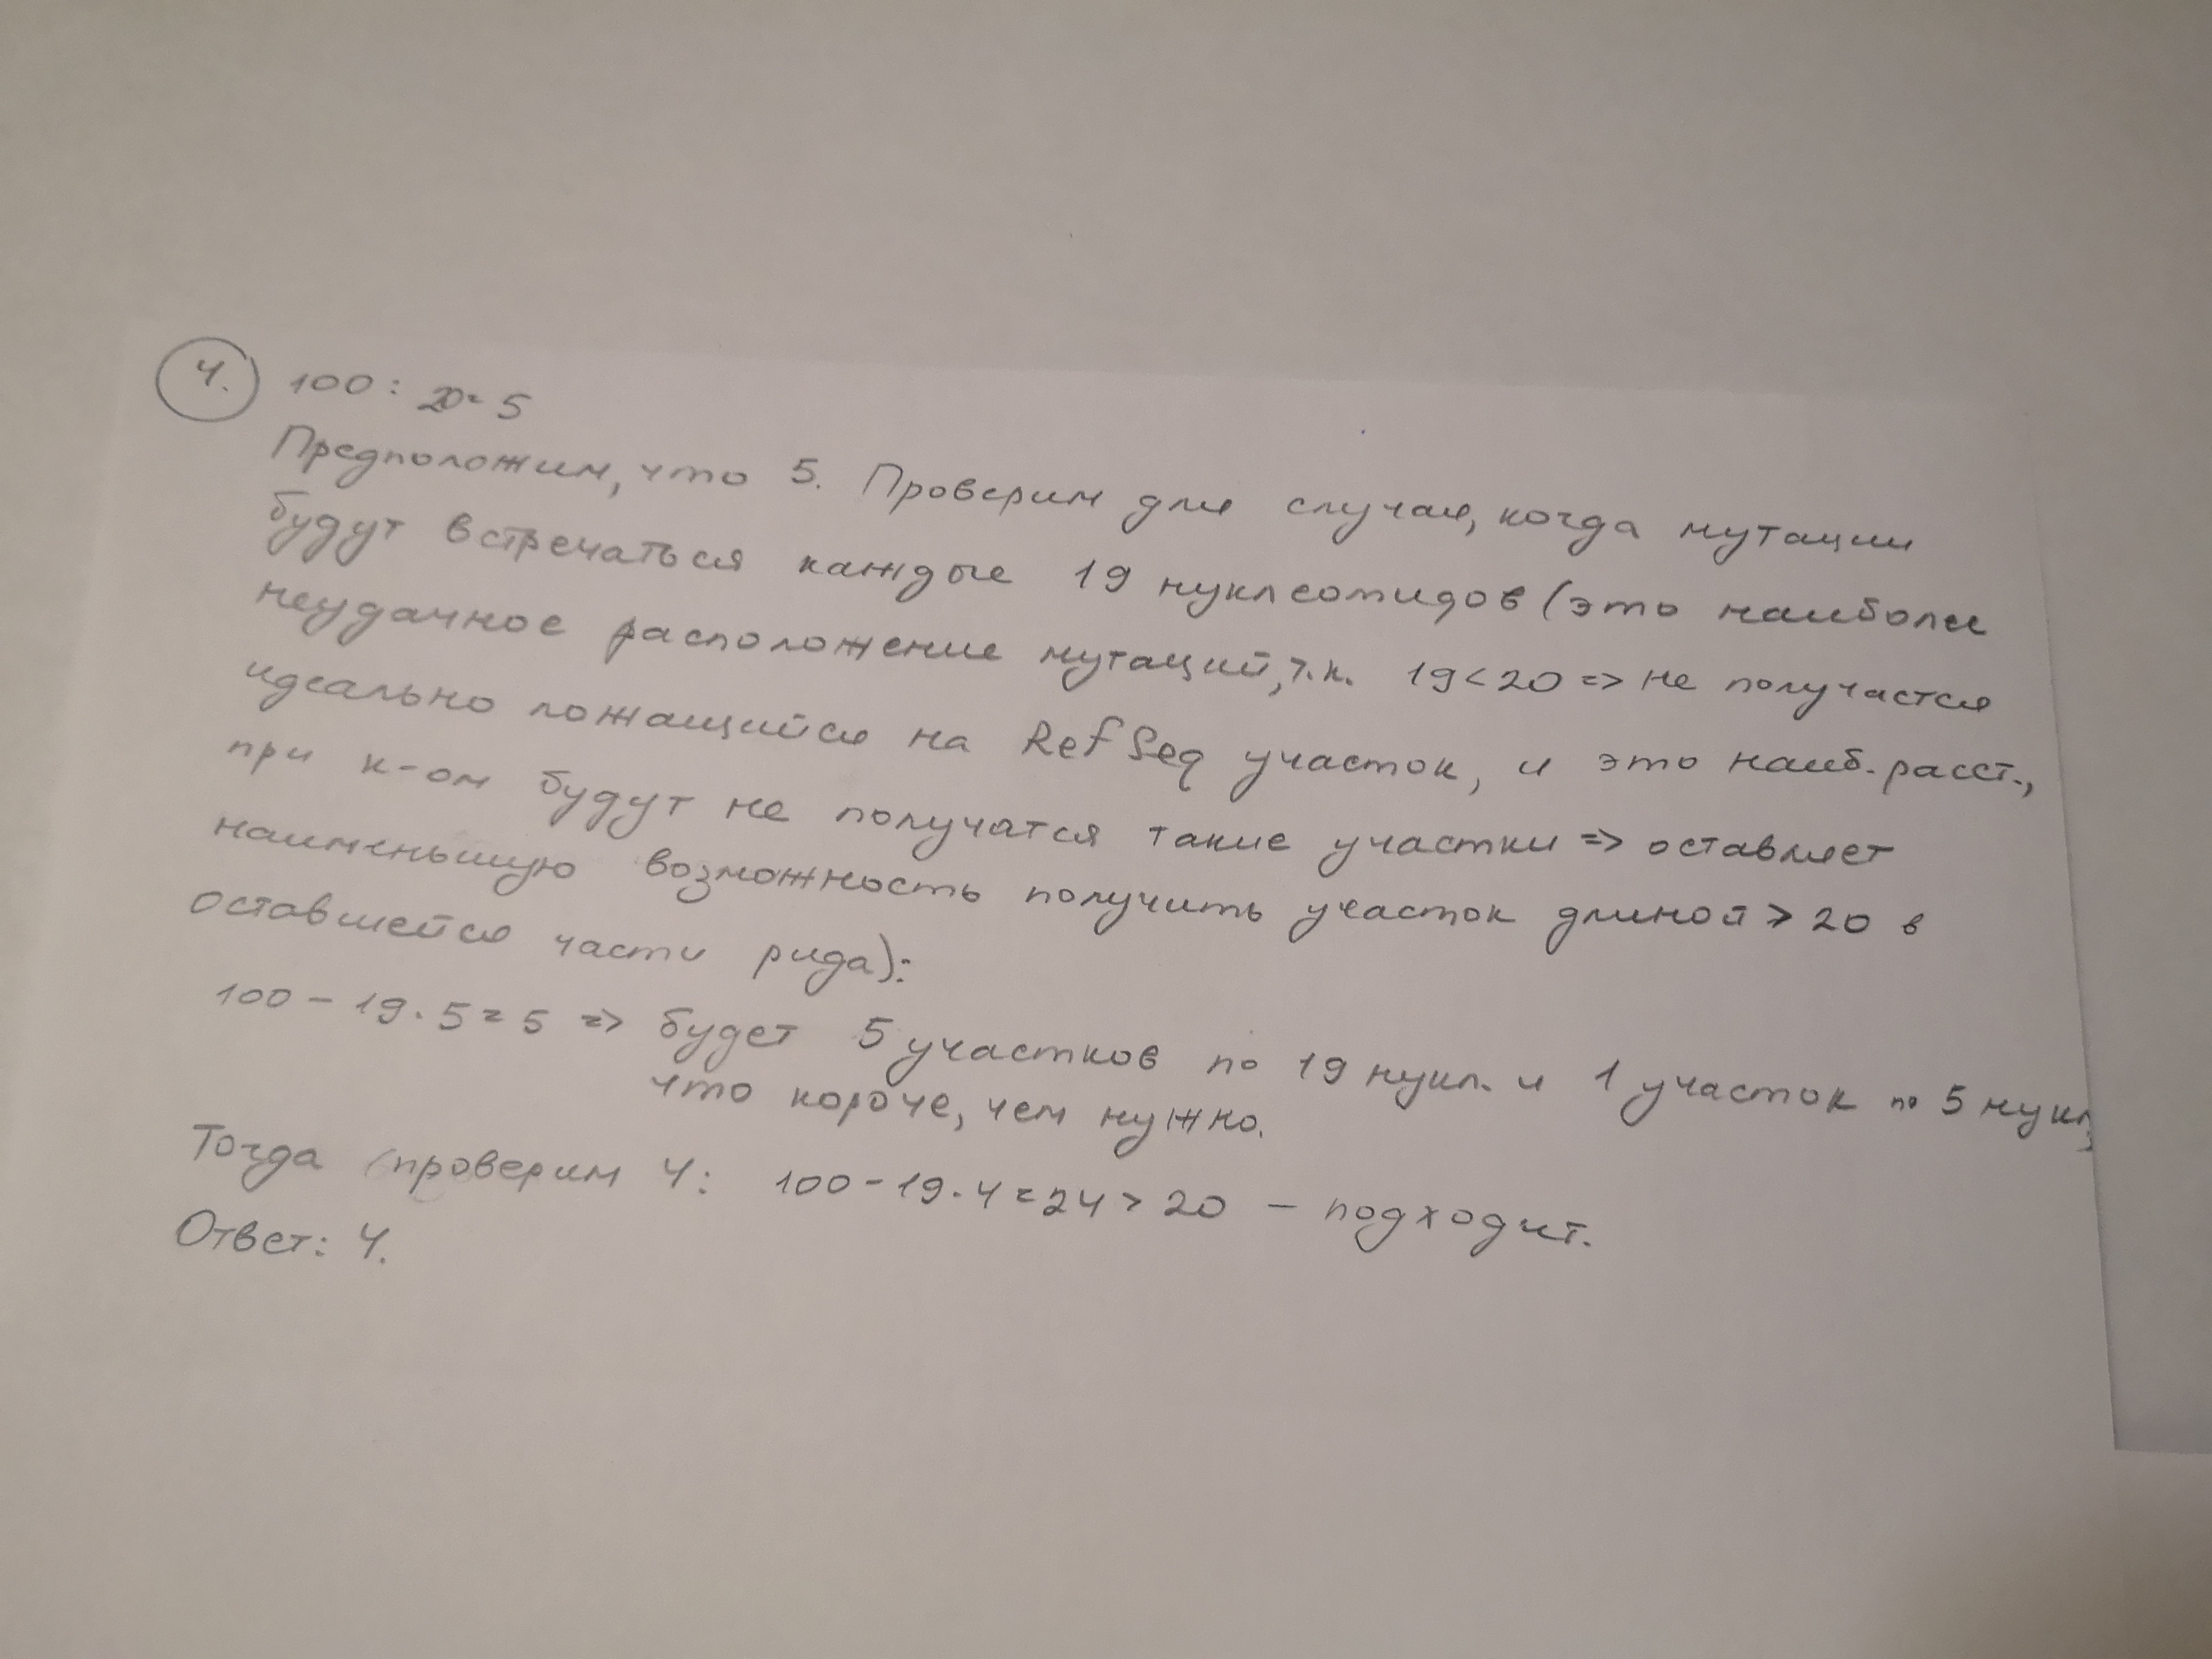 4. 100 : 20 = 5
Предположим, что 5. Проверим для случая, когда мутации
будут встречаться каждые 19 нуклеотидов (это наиболее
неудачное расположение мутаций, т.к. 19 < 20 => не получается
идеально ложащийся на RefSeq участок, и это наиб. расст.,
при к-ом будут не получатся такие участки => оставляет
наименьшую возможность получить участок длиной > 20 в
оставшейся части рида):
100 - 19 · 5 = 5 => будет 5 участков по 19 нукл. и 1 участок по 5 нукл,
что короче, чем нужно.
Тогда проверим 4: 100 - 19 · 4 = 24 > 20 - подходит.
Ответ: 4.